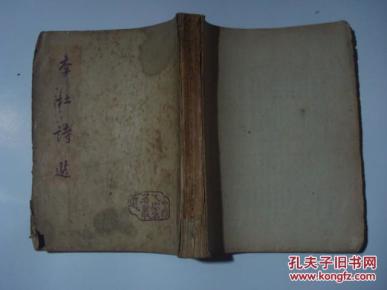 李杜詩選
孔夫子旧书网
www.kongfz.com